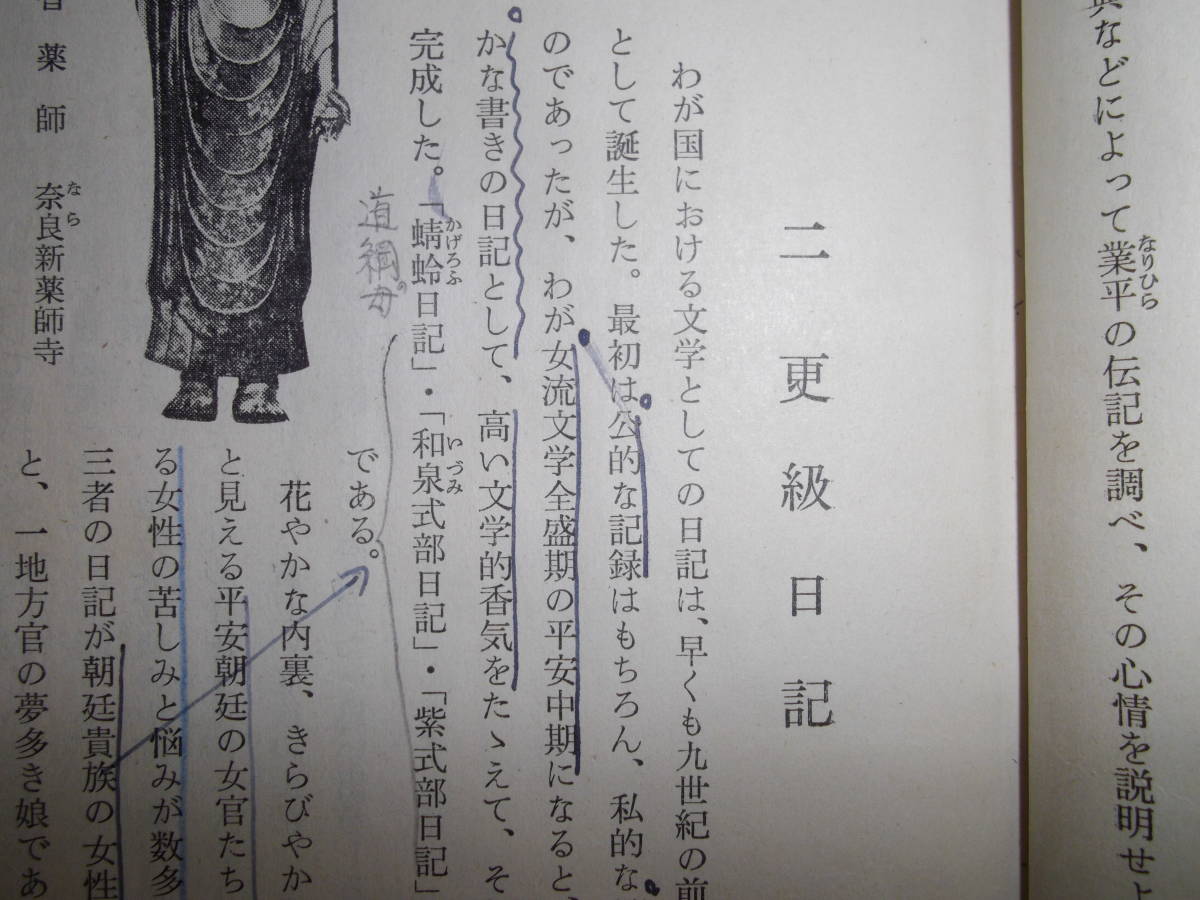 典などによって業平の伝記を調べ、その心情を説明せよ
なりひら
二 更級日記
わが国における文学としての日記は、早くも九世紀の前
として誕生した。最初は公的な記録はもちろん、私的な
のであったが、わが女流文学全盛期の平安中期になると
かな書きの日記として、高い文学的香気をたゝえて、そ
完成した。「蜻蛉日記」・「和泉式部日記」・「紫式部日記」
かげろふ
いづみ
道綱母
である。
花やかな内裏、きらびやか
と見える平安朝廷の女官たち
る女性の苦しみと悩みが数多
三者の日記が朝廷貴族の女性
と、一地方官の夢多き娘であ
薬師 奈良新薬師寺
なら